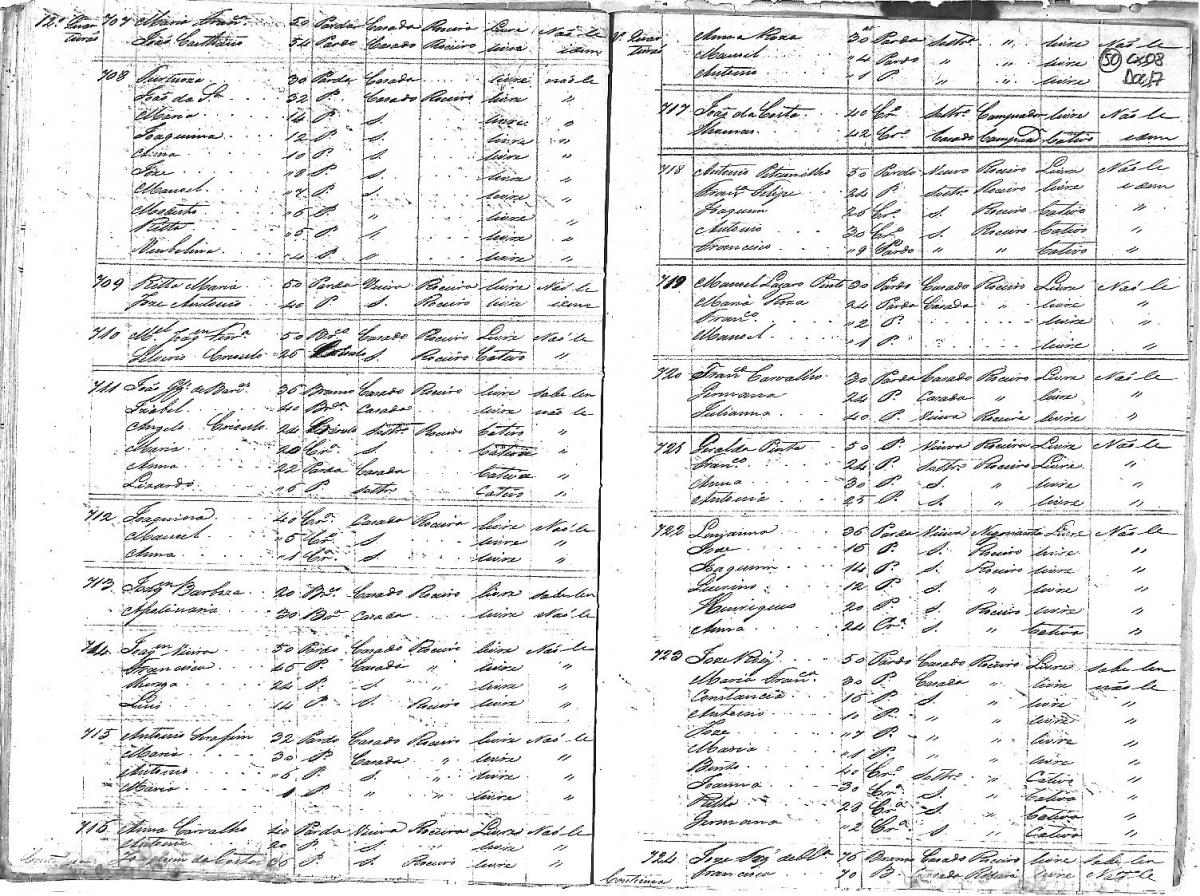 12º 707 Maria Franca 50 Parda Casada Roceira Livre Não le
João Caetano 54 Pardo Casado Roceiro livre idem
708 30 Parda Casada livre não le
João da Sa 32 P. Casado Roceiro livre "
Maria 14 P. S. livre "
Joaquina 12 P. S. livre "
Anna 10 P. S. livre "
Jose "8 P. S. livre "
Manoel "7 P. S. livre "
Modesto "6 P. " livre "
Ritta "5 P. S. livre "
"4 P. " livre "
709 Ritta Maria 50 Parda Viuva Roceira livre Não le
Jose Antonio 20 P. S. Roceiro livre idem
710 Mel Joaqm 50 Brco Casado Roceiro Livre Não le
Crioulo 25 S. Roceiro Cativo "
711 João 36 Branco Casado Roceiro livre sabe ler
Izabel 40 Bra Casada livre não le
Angelo Crioulo 24 Crioulo Soltro Roceiro Cativo "
Maria 20 Cra Cativa "
Anna 22 Parda Casada Cativa "
Lizardo "6 P. Soltro Cativo "
712 Joaquina 40 Cra Casada Roceira livre Não le
Manoel "5 Cro S. livre "
Anna "1 Cra S. livre "
713 Joaqm Barboza 20 Bro Casado Roceiro livre sabe ler
Apolinaria 30 Bra Casada livre Não le
714 Joaqm Vieira 50 Pardo Casado Roceiro livre Não le
Francisca 45 P. Casada " livre "
24 P. S. " livre "
Luis 14 P. S. Roceiro livre "
715 Antonio Serafim 32 Pardo Casado Roceiro livre Não le
Maria 30 P. Casada " livre "
Antonio "6 P. S. " livre "
Maria 1 P. " livre "
716 Anna Carvalho 40 Parda Viuva Roceira Livre Não le
Antonia 20 P. S. livre "
Joaquim da Costa 30 P. S. Roceiro livre "
Anna Roza 30 Parda Soltra " livre Não le
Manoel "4 Pardo " " livre "
Antonio 1 P. " " livre "
50 CX08
Doc17
717 João da Costa 40 Cro Soltro Campeador livre Não le
42 Cro Casado Cativo idem
718 Antonio 50 Pardo Viuvo Roceiro Livre Não le
Franco Felipe 24 P. Soltro Roceiro livre idem
Joaquim 26 Cro S. Roceiro Cativo "
Antonio 30 Cro S. Roceiro Cativo "
Francisco "9 Pardo " " Cativo "
719 Manoel Lazaro Pinto 30 Pardo Casado Roceiro Livre Não le
Maria 24 Parda Casada " livre "
Franco "2 P. livre "
Manoel "1 P. livre "
720 Franco Carvalho 30 Pardo Casado Roceiro Livre Não le
Germana 24 P. Casada " livre "
Julianna 40 P. Viuva Roceira livre "
721 Geralda Pinta 50 P. Viuva Roceira Livre Não le
Franco 24 P. Soltro Roceiro Livre "
Anna 30 P. S. " livre "
Antonia 25 P. S. " livre "
722 36 Parda Viuva Negociante Livre Não le
Jose 16 P. S. Roceiro livre "
Joaquim 14 P. S. Roceiro livre "
12 P. S. " livre "
Henriques 20 P. S. Roceiro livre "
Anna 24 Cra S. " Cativa "
723 Jose 50 Pardo Casado Roceiro Livre sabe ler
Maria Franca 30 P. Casada " livre não le
Constancia 16 P. S. " livre "
Antonio 10 P. " " livre "
Jose "7 P. " " livre "
Maria "1 P. " " livre "
Bento 40 Cro Soltro " Cativo "
Joanna 30 Cra S. " Cativa "
Ritta 23 Cra S. " Cativa "
Germana "2 Cra S. " Cativa "
724 Joze 76 Branco Casado Roceiro livre Sabe ler
Francisca 70 B. Casada Roceira livre Não le
Continua